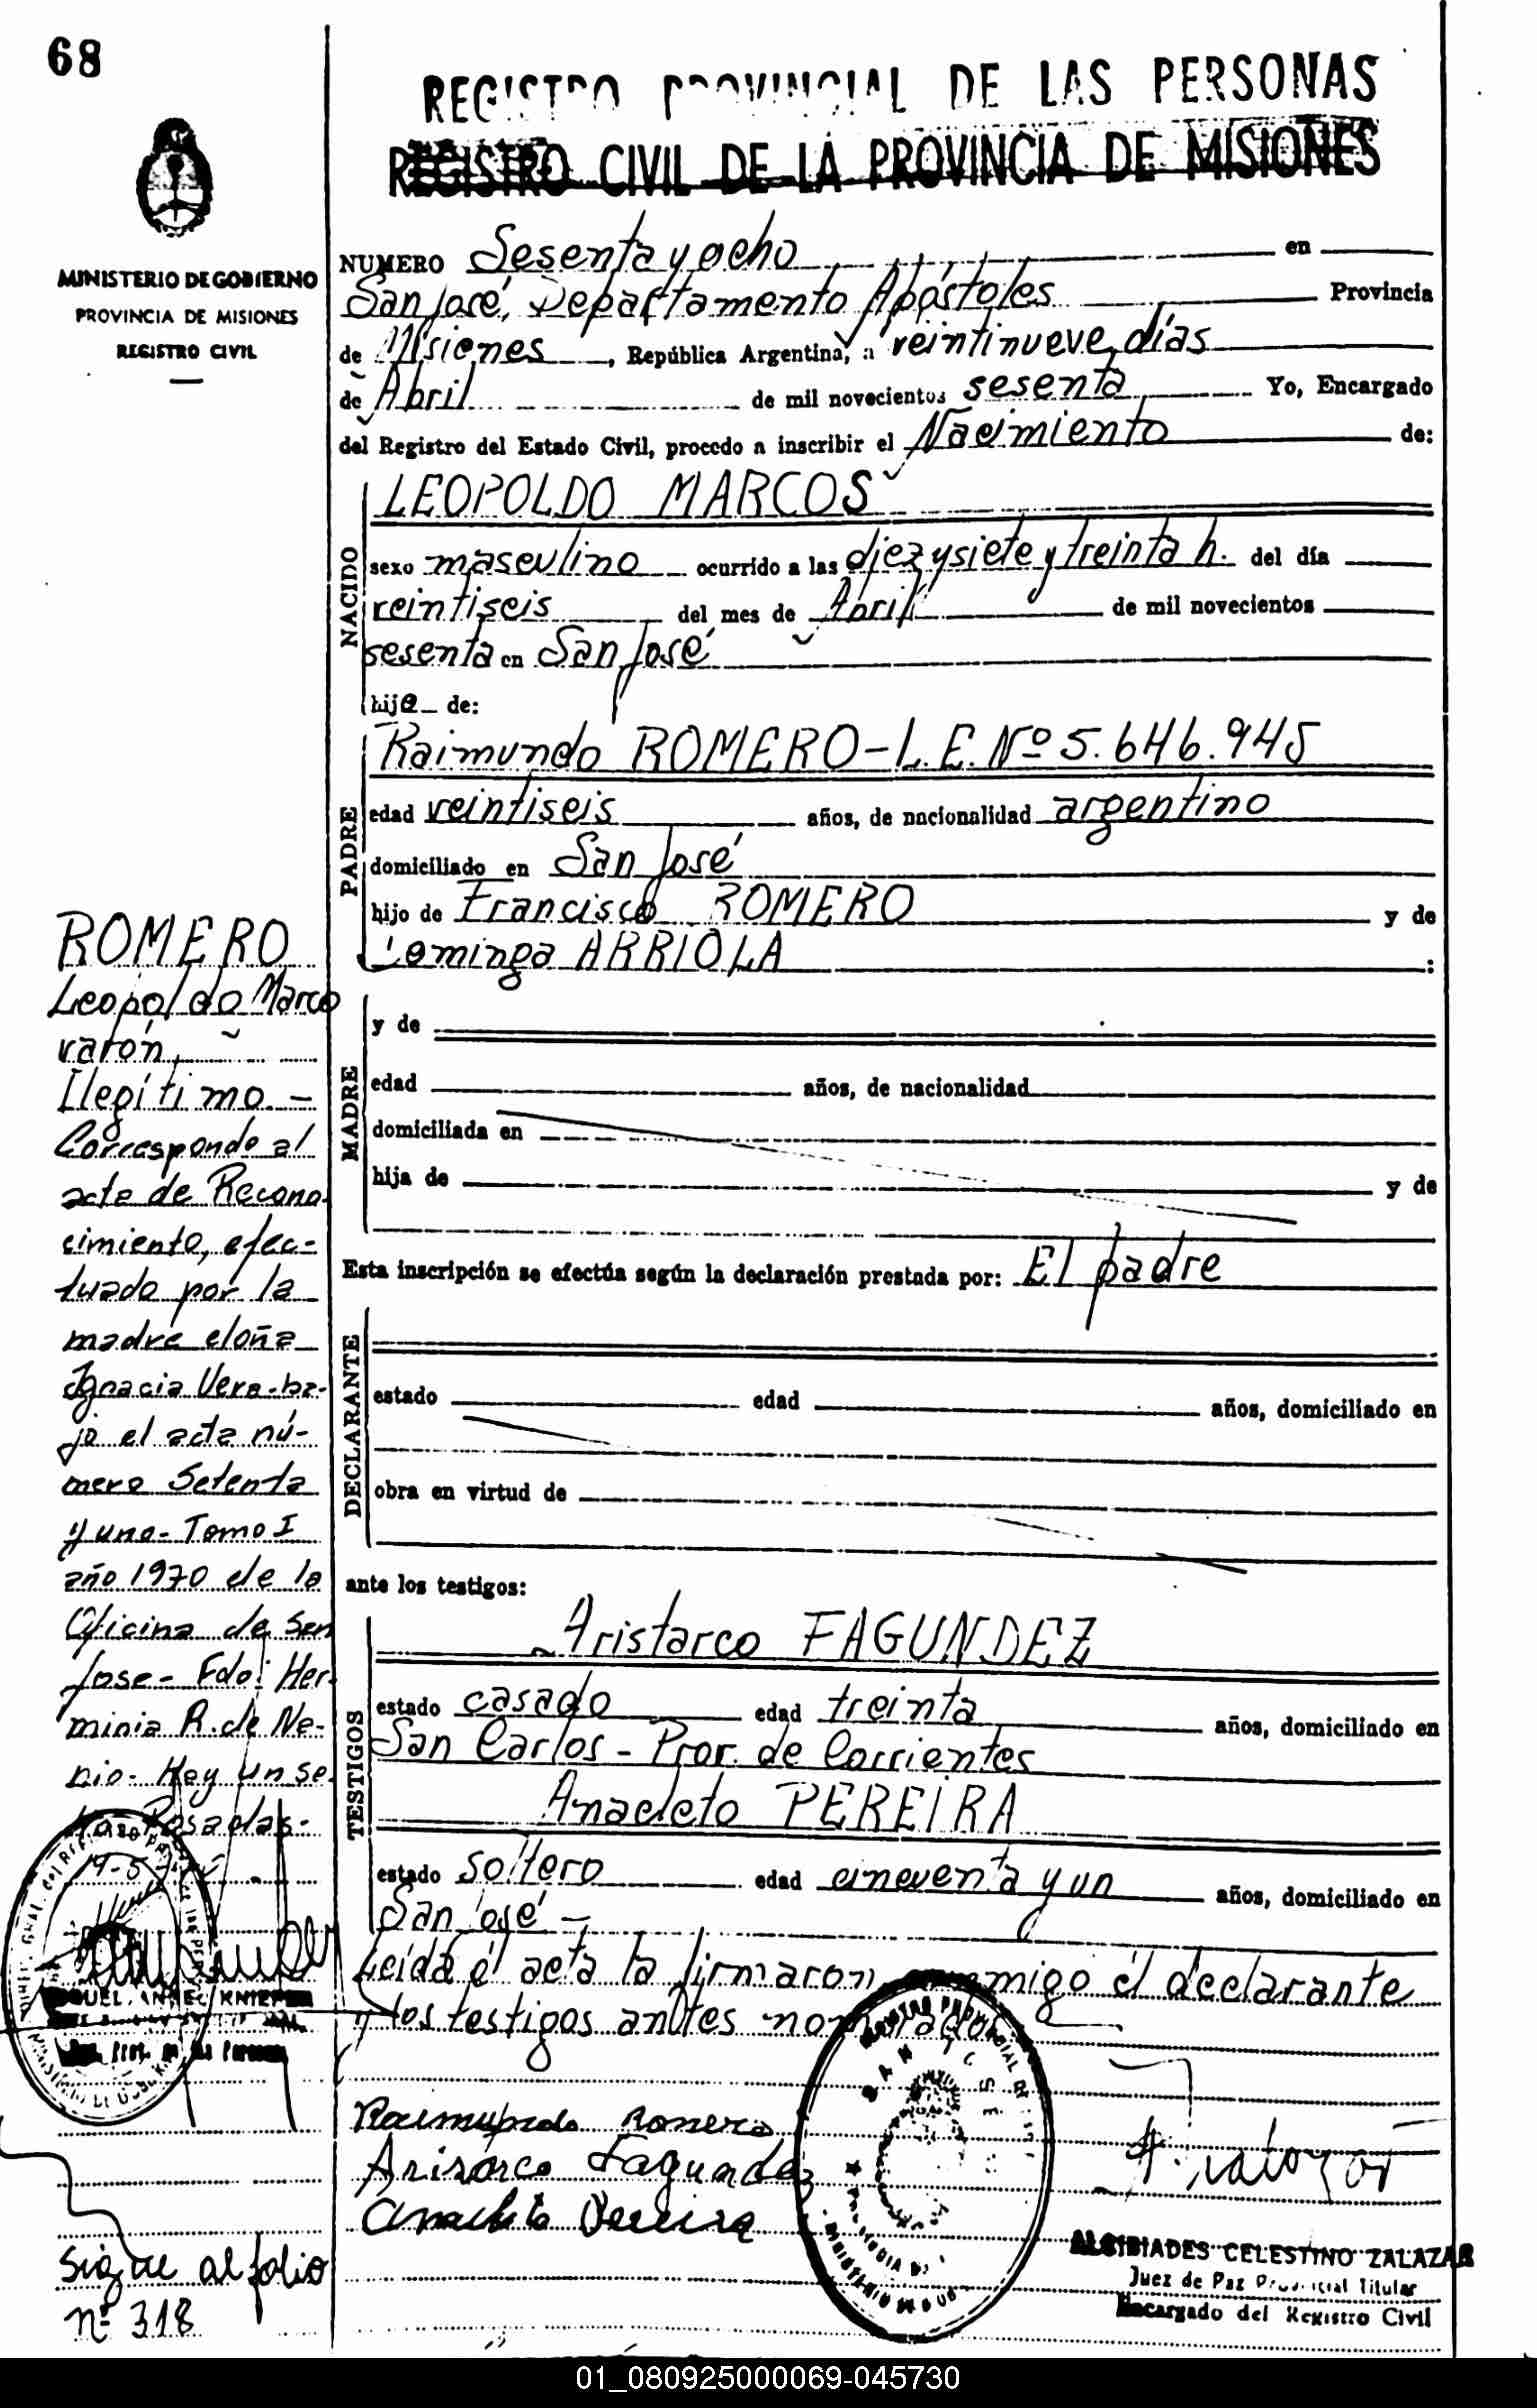 68
REGISTRO PROVINCIAL DE LAS PERSONAS
REGISTRO CIVIL DE LA PROVINCIA DE MISIONES
MINISTERIO DE GOBIERNO
PROVINCIA DE MISIONES
REGISTRO CIVIL
NUMERO Sesenta y ocho en
San José, Departamento Apóstoles Provincia
de Misiones, República Argentina, a veintinueve días
de Abril de mil novecientos sesenta Yo, Encargado
del Registro del Estado Civil, procedo a inscribir el Nacimiento de:
NACIDO
LEOPOLDO MARCOS
sexo masculino ocurrido a las diez y siete y treinta h. del día
veintiseis del mes de Abril de mil novecientos
sesenta en San José
hijo de:
PADRE
Raimundo ROMERO-L.E.Nº 5.646.945
edad veintiseis años, de nacionalidad argentino
domiciliado en San José
hijo de Francisco ROMERO y de
Dominga ARRIOLA :
MADRE
y de
edad años, de nacionalidad
domiciliada en
hija de y de
Esta inscripción se efectúa según la declaración prestada por: El padre
DECLARANTE
estado edad años, domiciliado en
obra en virtud de
ante los testigos:
TESTIGOS
Aristarco FAGUNDEZ
estado casado edad treinta años, domiciliado en
San Carlos - Prov. de Corrientes
Anacleto PEREIRA
estado soltero edad cincuenta y un años, domiciliado en
San José -
Leída el acta la firmaron conmigo el declarante
y los testigos antes nombrados
Raimundo Romero
Arisarco Fagundez
Anacleto Pereira
ALCIBIADES CELESTINO ZALAZAR
Juez de Paz Provincial Titular
Encargado del Registro Civil
ROMERO
Leopoldo Marco
varón
Ilegítimo.-
Corresponde al
acta de Recono-
cimiento, efec-
tuado por la
madre doña
Ignacia Vera-ba-
jo el acta nú-
mero Setenta
y uno-Tomo I
año 1970 de la
Oficina de San
Jose- Fdo: Her-
minia R. de Ne-
nio- Hay un se-
llo Posadas-
Sigue al folio
nº 318
01_080925000069-045730